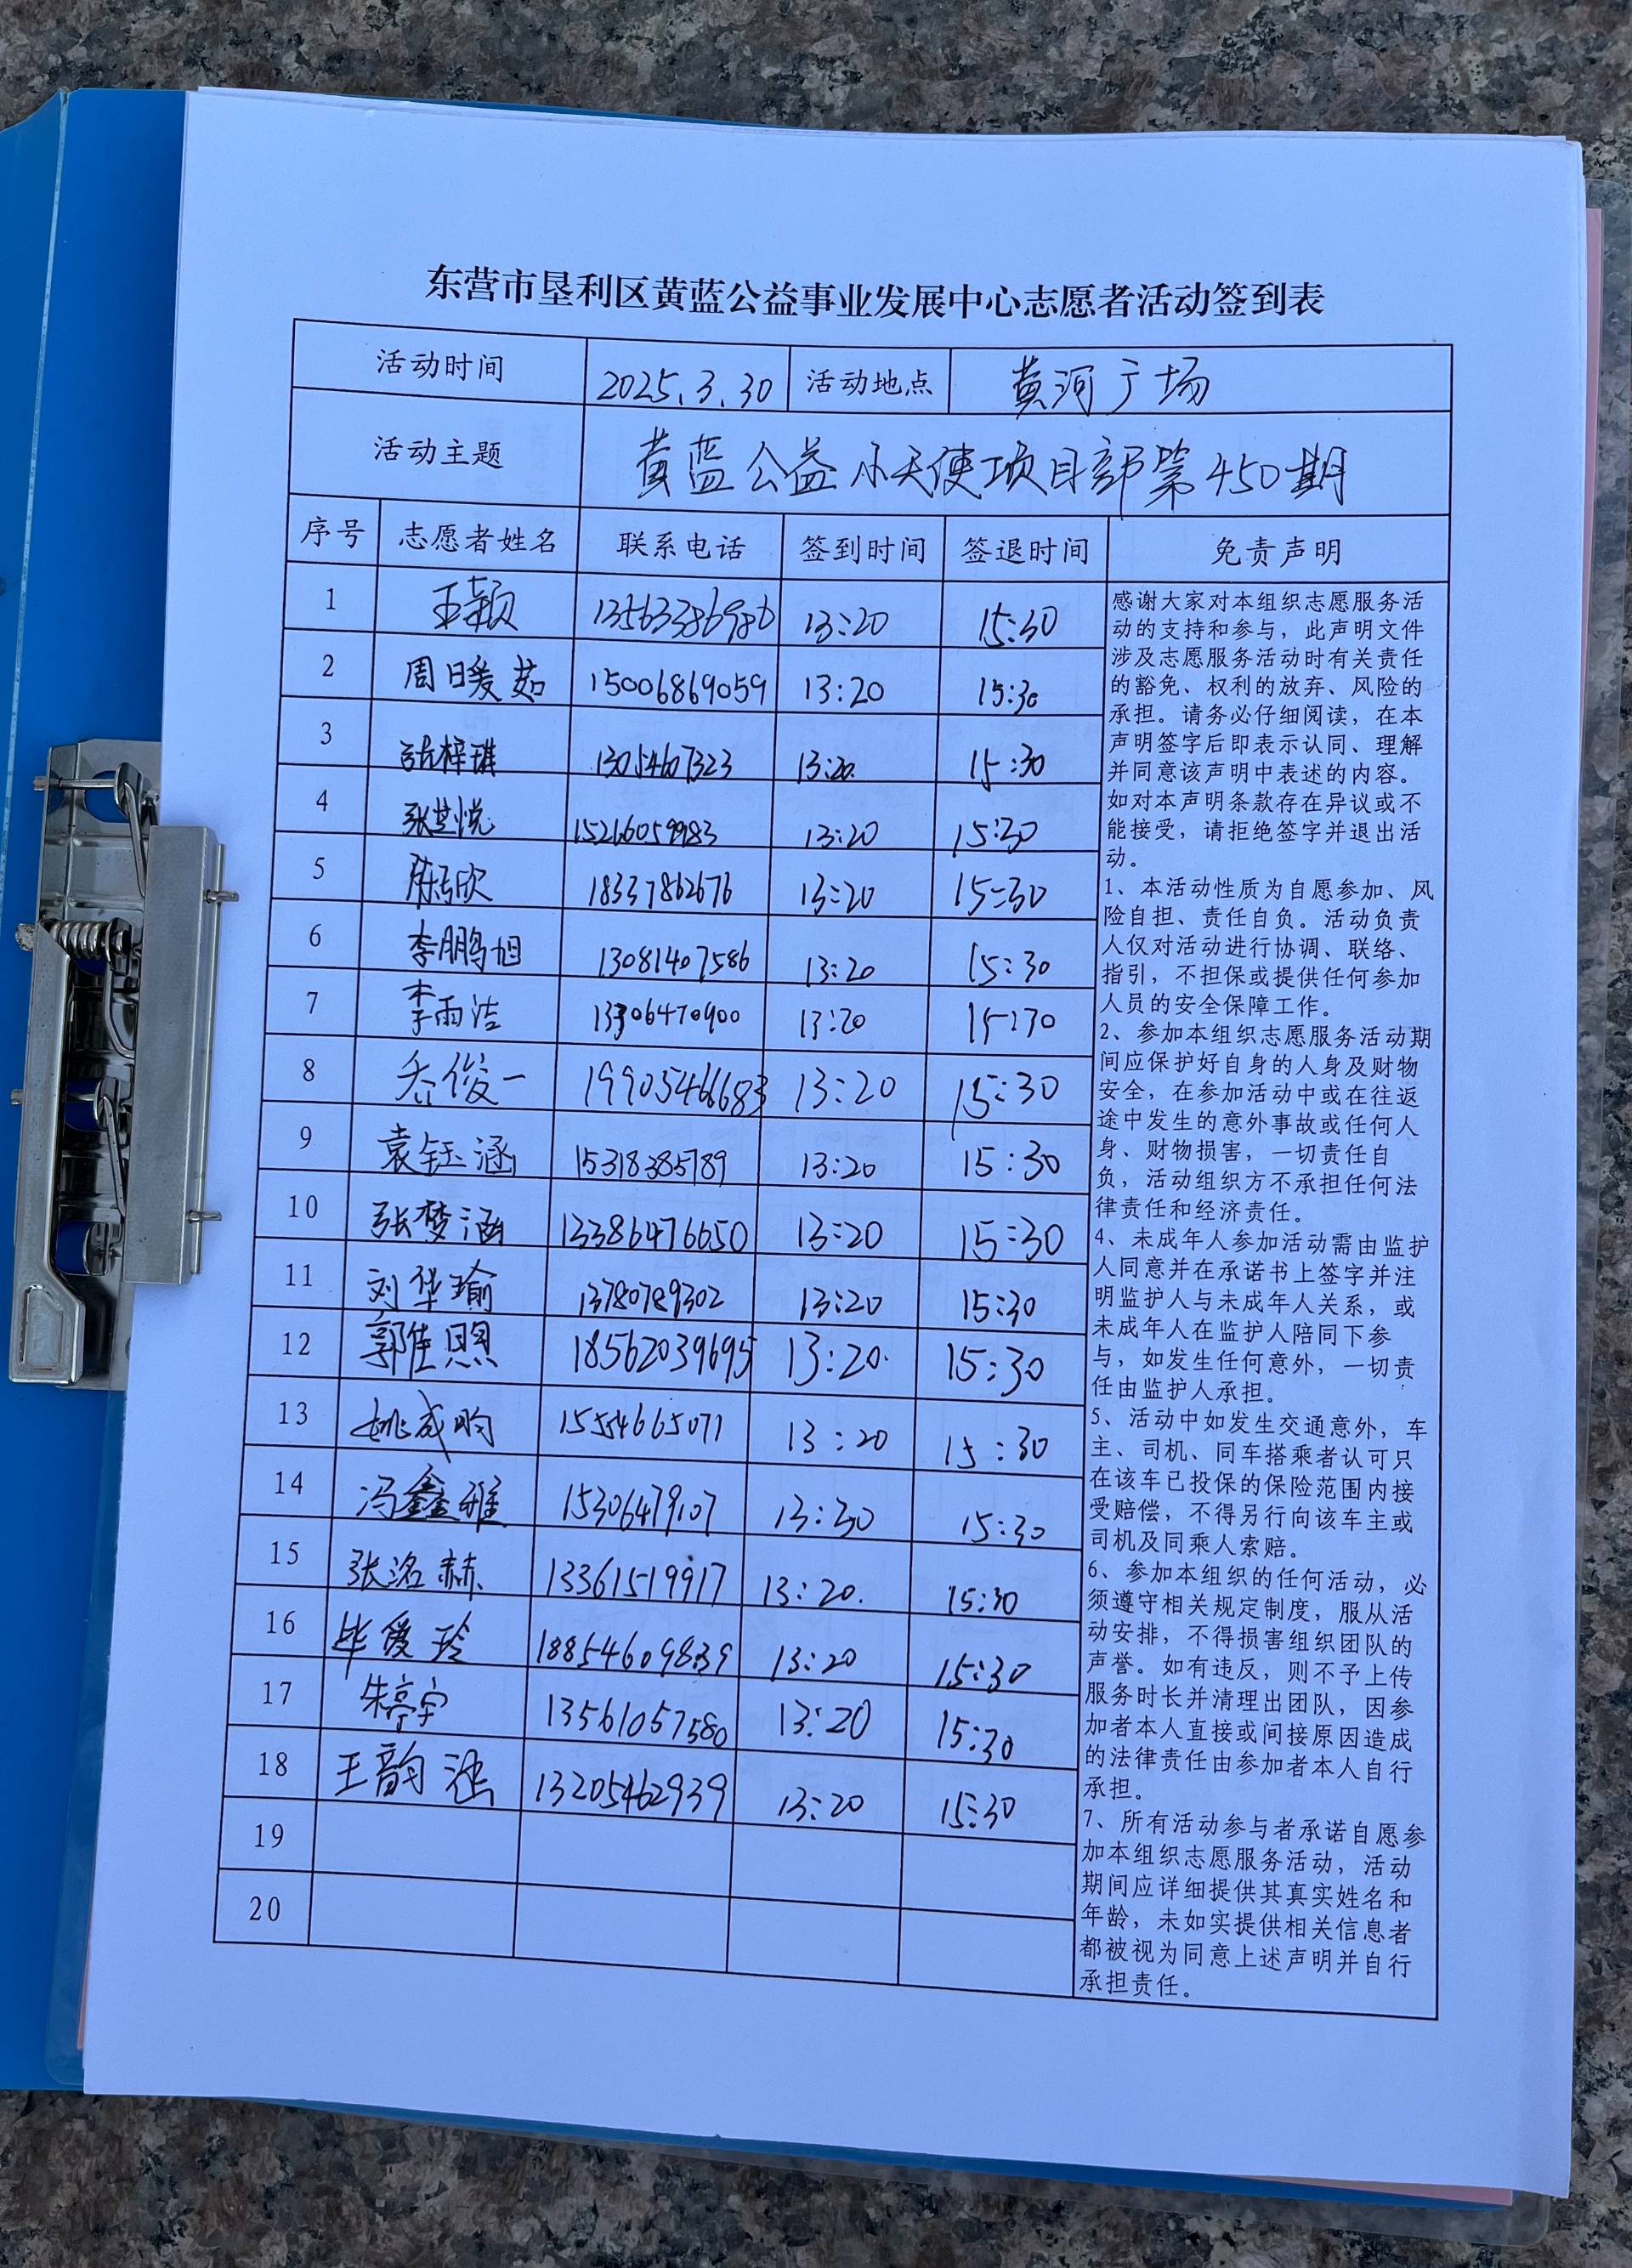 东营市垦利区黄蓝公益事业发展中心志愿者活动签到表
活动时间 2025.3.30 活动地点 黄河广场
活动主题 黄蓝公益小天使项目部第450期
序号 志愿者姓名 联系电话 签到时间 签退时间 免责声明
1 王颖 13563386986 13:20 15:30
2 周日暖茹 15006869059 13:20 15:30
3 张梓琪 13054607323 13:20. 15:30
4 张芸悦 15266059983 13:20 15:30
5 陈欣 18337862676 13:20 15:30
6 李鹏旭 13081407586 13:20 15:30
7 李雨洁 13306470900 13:20 15:30
8 乔俊一 19905466683 13:20 15:30
9 袁钰涵 15318385789 13:20 15:30
10 张梦涵 13386476650 13:20 15:30
11 刘华瑜 13780789302 13:20 15:30
12 郭佳恩 18562039695 13:20. 15:30
13 姚成昀 15554665071 13:20 15:30
14 冯鑫雅 15306479107 13:30 15:30
15 张洺赫 13361519917 13:20. 15:30
16 毕爱玲 18854609839 13:20 15:30
17 朱亭宇 13561057580 13:20 15:30
18 王韵涵 13205462939 13:20 15:30
19
20
感谢大家对本组织志愿服务活
动的支持和参与，此声明文件
涉及志愿服务活动时有关责任
的豁免、权利的放弃、风险的
承担。请务必仔细阅读，在本
声明签字后即表示认同、理解
并同意该声明中表述的内容。
如对本声明条款存在异议或不
能接受，请拒绝签字并退出活
动。
1、本活动性质为自愿参加、风
险自担、责任自负。活动负责
人仅对活动进行协调、联络、
指引，不担保或提供任何参加
人员的安全保障工作。
2、参加本组织志愿服务活动期
间应保护好自身的人身及财物
安全，在参加活动中或在往返
途中发生的意外事故或任何人
身、财物损害，一切责任自
负，活动组织方不承担任何法
律责任和经济责任。
4、未成年人参加活动需由监护
人同意并在承诺书上签字并注
明监护人与未成年人关系，或
未成年人在监护人陪同下参
与，如发生任何意外，一切责
任由监护人承担。
5、活动中如发生交通意外，车
主、司机、同车搭乘者认可只
在该车已投保的保险范围内接
受赔偿，不得另行向该车主或
司机及同乘人索赔。
6、参加本组织的任何活动，必
须遵守相关规定制度，服从活
动安排，不得损害组织团队的
声誉。如有违反，则不予上传
服务时长并清理出团队，因参
加者本人直接或间接原因造成
的法律责任由参加者本人自行
承担。
7、所有活动参与者承诺自愿参
加本组织志愿服务活动，活动
期间应详细提供其真实姓名和
年龄，未如实提供相关信息者
都被视为同意上述声明并自行
承担责任。